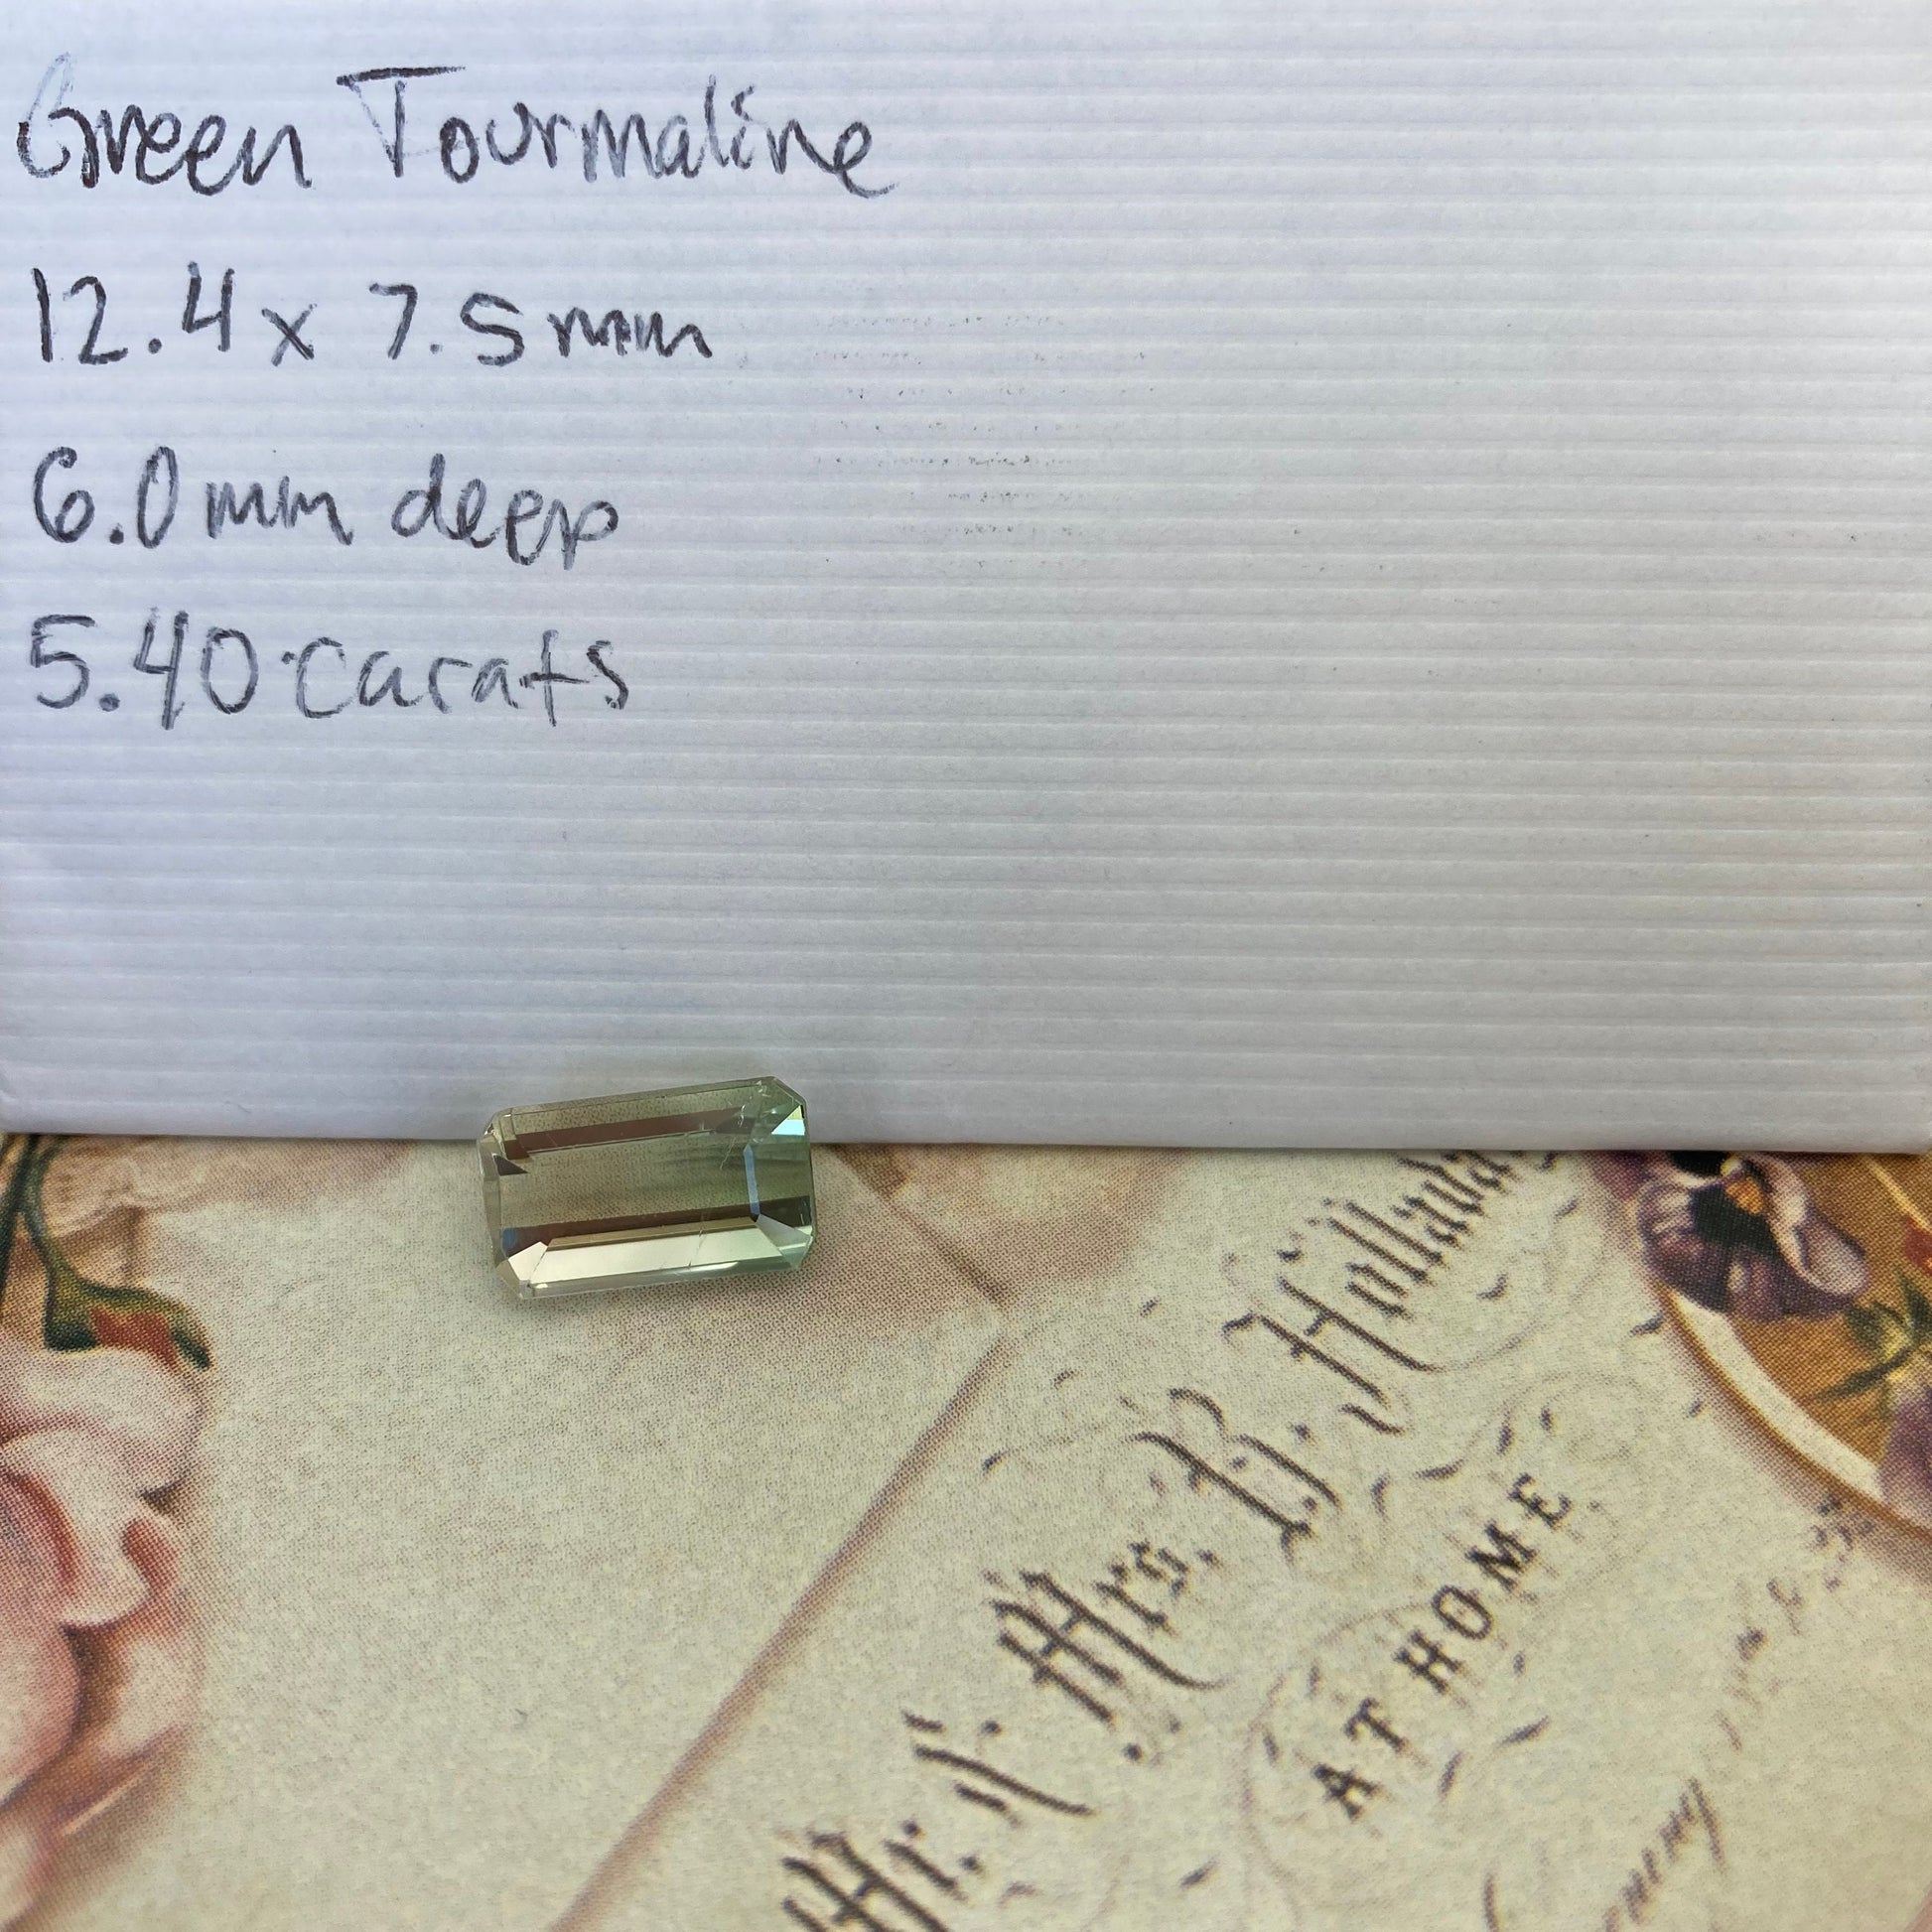 Green Tourmaline
12.4 x 7.5 mm
6.0 mm deep
5.40 carats
Mrs. B. Holland
AT HOME